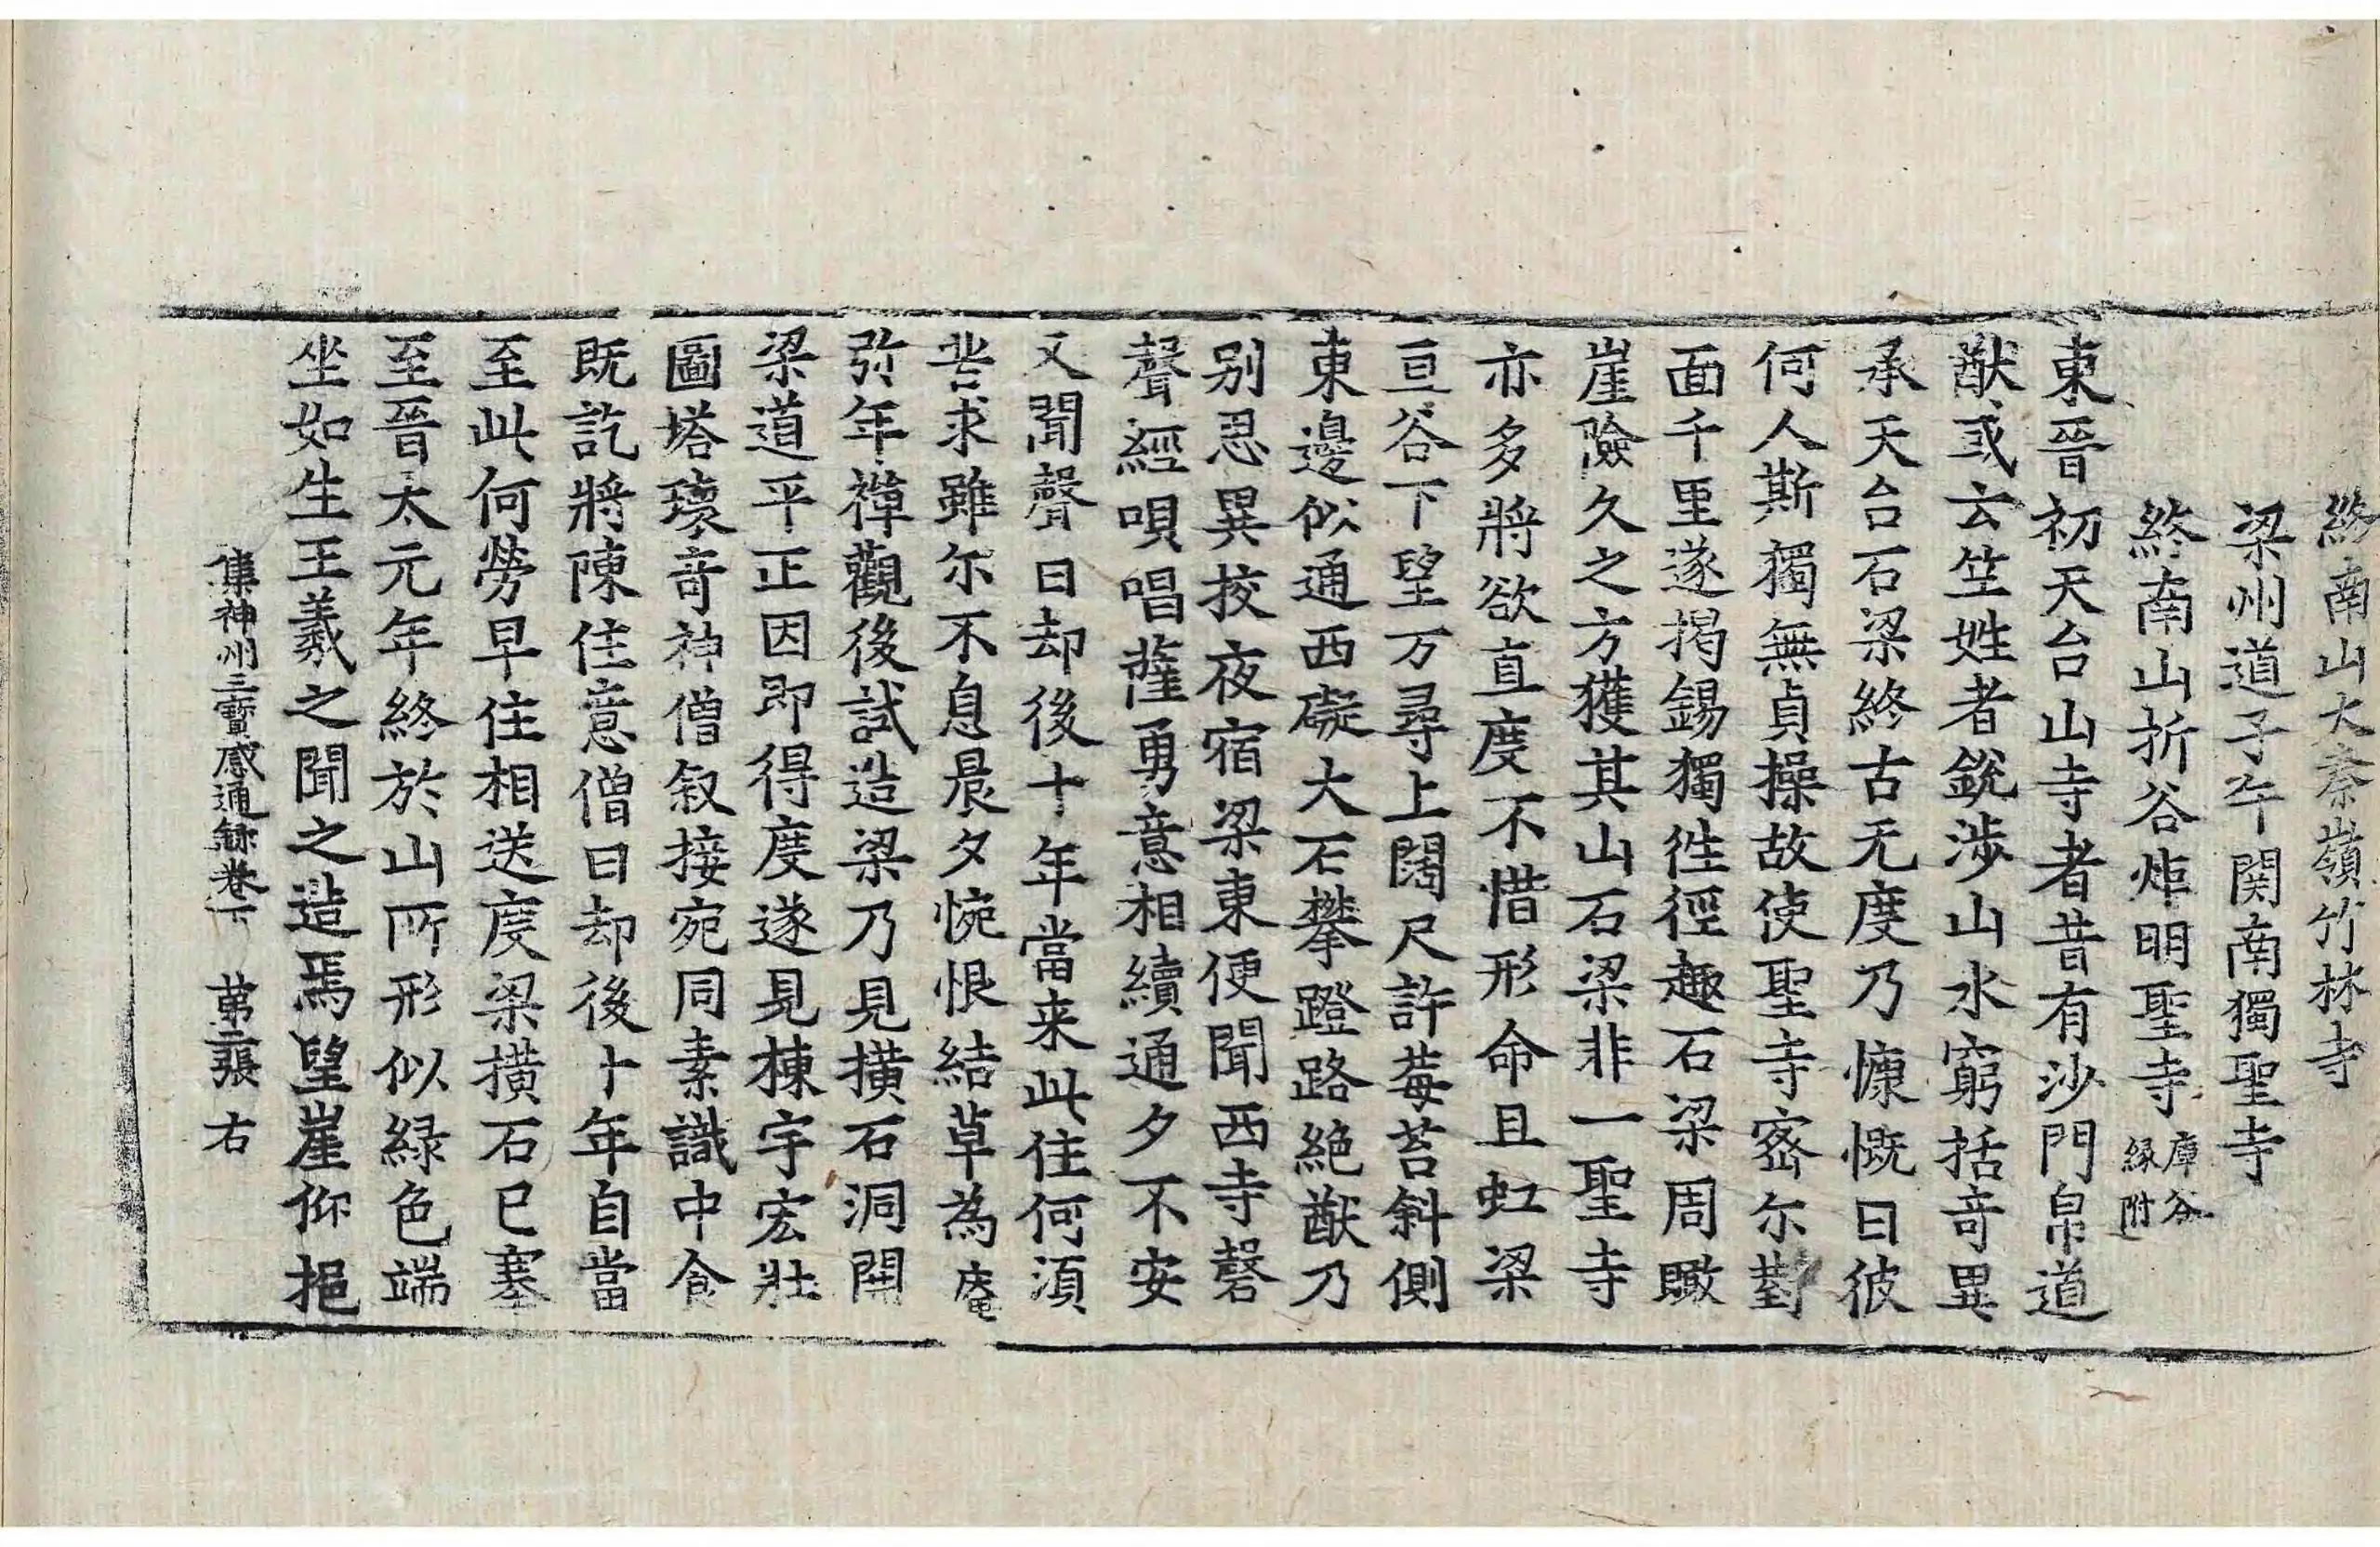 終南山大秦嶺竹林寺
梁州道子午関南獨聖寺
終南山折谷炬明聖寺庫谷縁附
東晉初天台山寺者昔有沙門帛道
猷或云竺姓者銳涉山水窮括奇異
承天台石梁終古无度乃慷慨曰彼
何人斯獨無貞操故使聖寺密尔對
面千里遂揭錫獨往徑趣石梁周瞰
崖險久之方獲其山石梁非一聖寺
亦多將欲直度不惜形命且虹梁
亘谷下望万尋上闊尺許莓苔斜側
東邊似通西礙大石攀蹬路絶猷乃
别忍異挍夜宿梁東便聞西寺磬
聲經唄唱薩勇意相續通夕不安
又聞聲曰却後十年當来此住何湏
苦求雖尔不息晨夕惋恨結草為庵
弥年禅觀後試造梁乃見撗石洞開
梁道平正因即得度遂見棟宇宏壯
圖塔瓌奇神僧叙接宛同素識中食
既訖將陳住意僧曰却後十年自當
至此何勞早住相送度梁撗石已塞
至晉太元年終於山所形似緑色端
坐如生王羲之聞之造焉望崖仰挹
集神州三寶感通録卷下 第二張 右